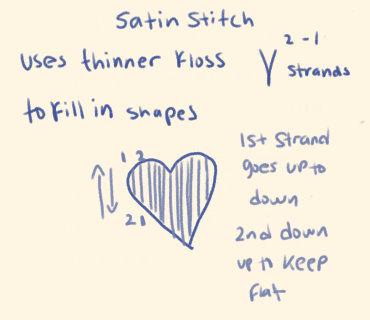 Satin Stitch
uses thinner floss
2-1
strands
to fill in shapes
1 2
2 1
1st Strand
goes up to
down
2nd down
up to keep
flat